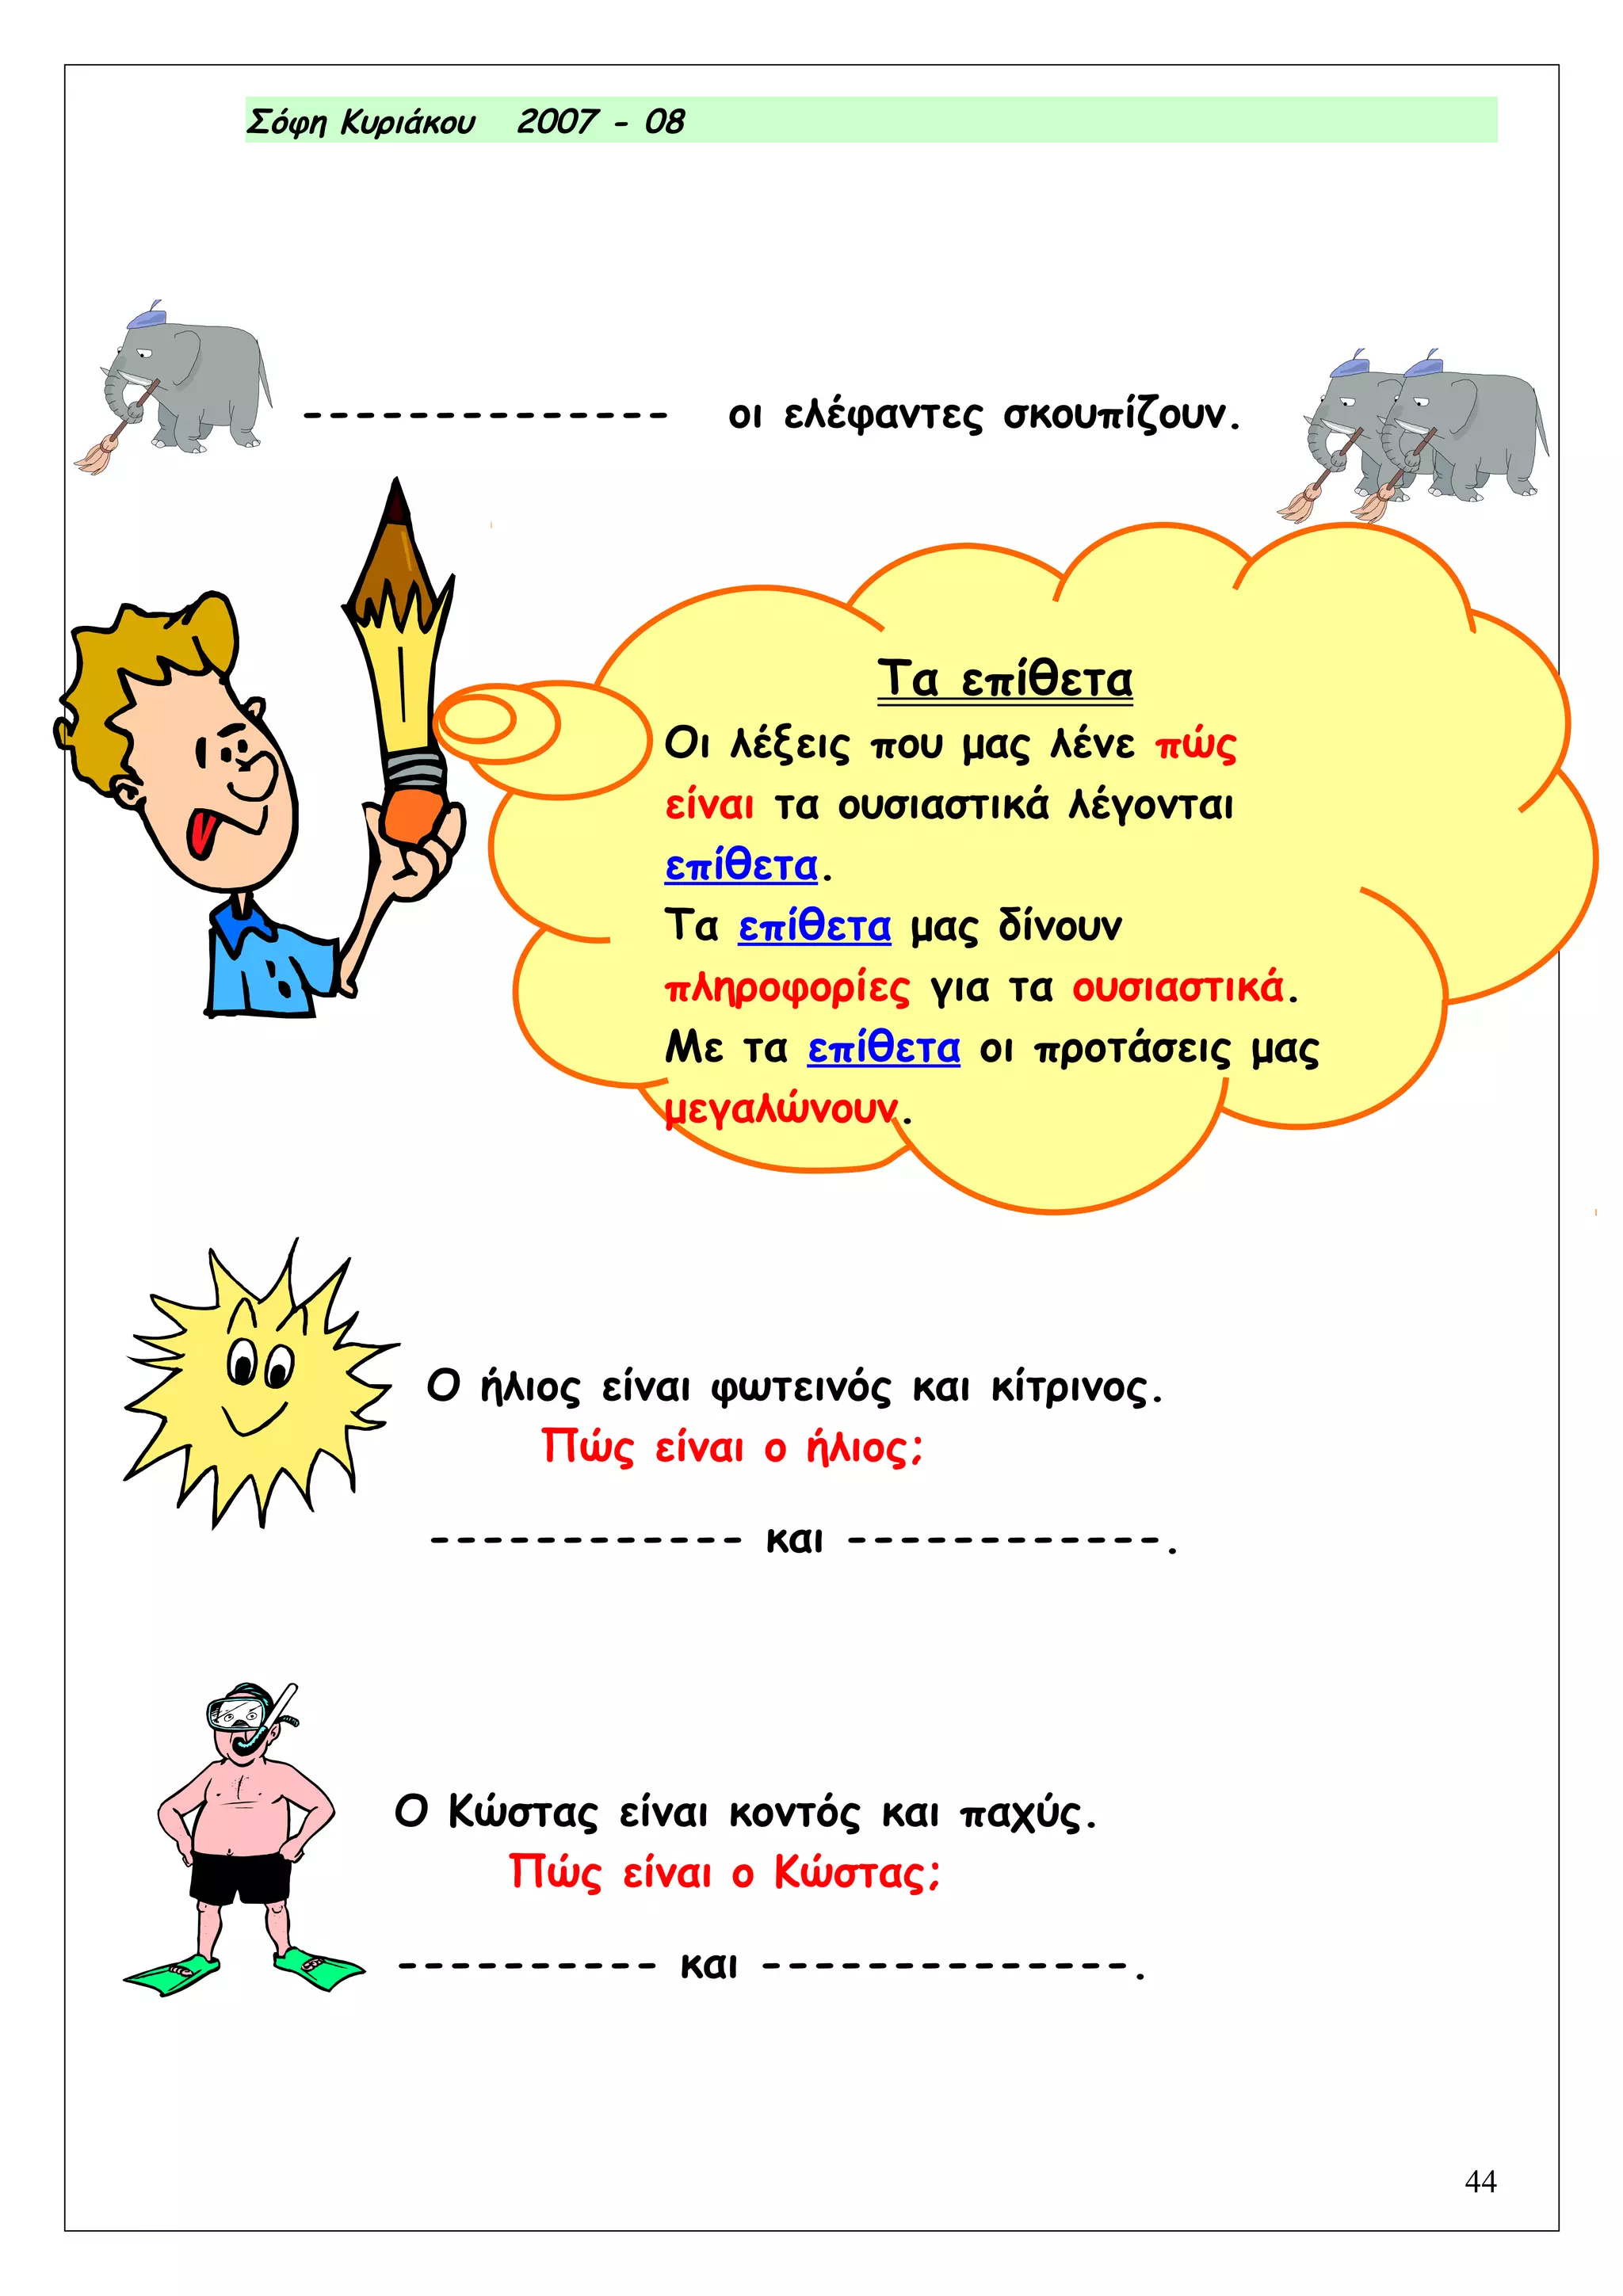 Σόφη Κυριάκου 2007 - 08
-------------- οι ελέφαντες σκουπίζουν.
Τα επίθετα
Οι λέξεις που μας λένε πώς
είναι τα ουσιαστικά λέγονται
επίθετα.
Τα επίθετα μας δίνουν
πληροφορίες για τα ουσιαστικά.
Με τα επίθετα οι προτάσεις μας
μεγαλώνουν.
Ο ήλιος είναι φωτεινός και κίτρινος.
Πώς είναι ο ήλιος;
------------ και ------------.
Ο Κώστας είναι κοντός και παχύς.
Πώς είναι ο Κώστας;
---------- και --------------.
44